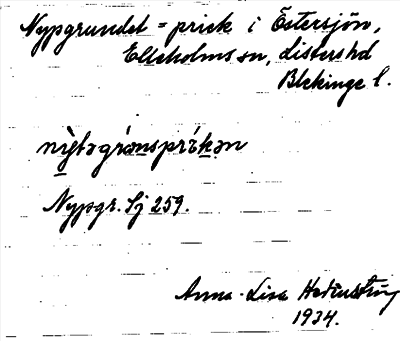 Nypgrundet = prick i Östersjön,
Elleholms sn, Listers hd
Blekinge l.
nỳbəgrónsprikən
Nypgr. Sj 259.
Anna-Lisa
1934.